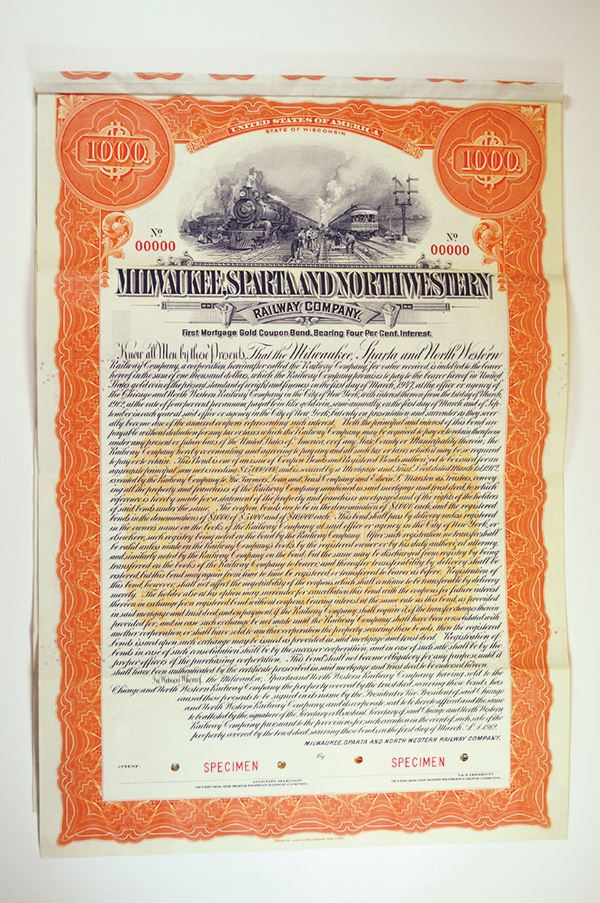 UNITED STATES OF AMERICA
STATE OF WISCONSIN
1000.
1000.
No
00000
No
00000
MILWAUKEE, SPARTA AND NORTH WESTERN
RAILWAY COMPANY.
First Mortgage Gold Coupon Bond, Bearing Four Per Cent. Interest.
Know all Men by these Presents, That the Milwaukee, Sparta and North Western
Railway Company, a corporation, hereinafter called the Railway Company, for value received is indebted to the bearer
hereof in the sum of one thousand dollars, which the Railway Company promises to pay to the bearer hereof in United
States gold coin of the present standard of weight and fineness on the first day of March, 1947, at the office or agency of
the Chicago and North Western Railway Company in the City of New York, with interest thereon from the 1st day of March,
1912, at the rate of four percent per annum, payable in like gold coin, semi-annually, on the first day of March and of Sep-
tember in each year at said office or agency in the City of New York, but only on presentation and surrender as they sever-
ally become due of the annexed coupons representing such interest. Both the principal and interest of this bond are
payable without deduction for any tax or taxes which the Railway Company may be required to pay or retain therefrom
under any present or future laws of the United States of America, or of any State, County or Municipality therein, the
Railway Company hereby covenanting and agreeing to pay any and all such tax or taxes which it may be so required
to pay or to retain. This bond is one of an issue of Coupon Bonds and Registered Bonds authorized to be issued for an
aggregate principal sum not exceeding $15,000,000, and is secured by a Mortgage and Trust Deed dated March 1st, 1912,
executed by the Railway Company to The Farmers' Loan and Trust Company and Edwin S. Marston as Trustees, convey-
ing all the property and franchises of the Railway Company mentioned in said mortgage and trust deed, to which
reference is hereby made for a statement of the property and franchises mortgaged and of the rights of the holders
of said bonds under the same. The coupon bonds are to be in the denomination of $1,000 each, and the registered
bonds in the denominations of $1,000 $5,000 and $10,000 each. This bond shall pass by delivery unless registered
in the owner's name on the books of the Railway Company at said office or agency in the City of New York, or
elsewhere, such registry being noted on the bond by the Railway Company. After such registration no transfer shall
be valid unless made on the Railway Company's books by the registered owner or by his duly authorized attorney,
and similarly noted by the Railway Company on the bond, but the same may be discharged from registry by being
transferred on the books of the Railway Company to bearer, and thereafter transferability by delivery shall be
restored, but this bond may again from time to time be registered or transferred to bearer as before. Registration of
this bond, however, shall not affect the negotiability of the coupons which shall continue to be transferable by delivery
merely. The holder also at his option may surrender for cancellation this bond with the coupons for future interest
thereon in exchange for a registered bond without coupons, bearing interest at the same rate as this bond, as provided
in said mortgage and trust deed, and on payment, if the Railway Company shall require it, of the transfer charges therein
provided for; and in case such exchange be not made until the Railway Company shall have been consolidated with
another corporation, or shall have sold to another corporation the property securing these bonds, then the registered
bonds issued upon such exchange may be issued as provided in said mortgage and trust deed. Registration of
bonds in case of such consolidation shall be by the successor corporation, and in case of such sale shall be by the
proper officers of the purchasing corporation. This bond shall not become obligatory for any purpose until it
shall have been authenticated by the certificate prescribed in said mortgage and trust deed to be endorsed hereon.
In Witness Whereof, the Milwaukee, Sparta and North Western Railway Company having sold to the
Chicago and North Western Railway Company the property covered by the trust deed securing these bonds, has
caused these presents to be signed in its name by the President or Vice President of said Chicago
and North Western Railway Company, and its corporate seal to be hereto affixed and the same
to be attested by the signature of the Secretary or Assistant Secretary of said Chicago and North Western
Railway Company pursuant to the provisions for such execution in the event of such sale of the
property covered by the trust deed, securing these bonds, on the first day of March, A.D. 1912.
MILWAUKEE, SPARTA AND NORTH WESTERN RAILWAY COMPANY,
ATTEST:
SPECIMEN
By
SPECIMEN
ASSISTANT SECRETARY
OF CHICAGO AND NORTH WESTERN RAILWAY COMPANY.
VICE PRESIDENT
OF CHICAGO AND NORTH WESTERN RAILWAY COMPANY.